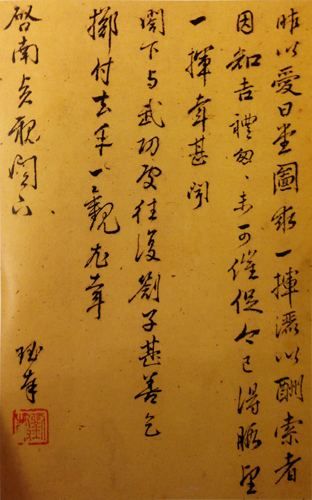 昨以愛日堂圖求一揮灑以酬索者
因知吉禮匆匆未可催促今已得暇望
一揮幸甚聞
閣下与武功處往復劄子甚善乞
擲付去手一觀尤幸
啓南貞親閣下
珏奉